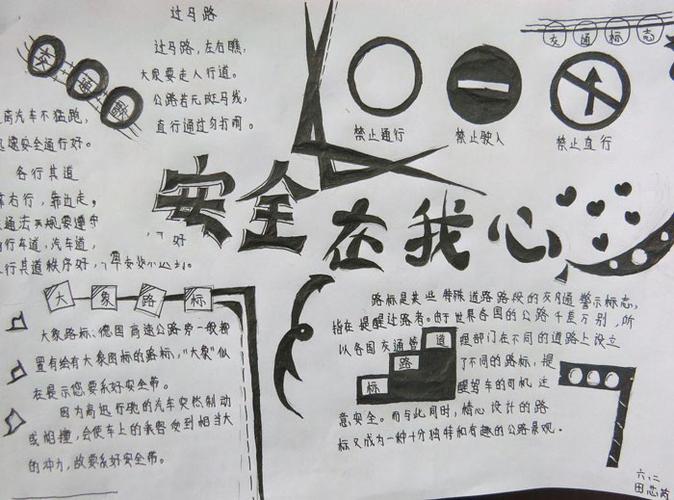 过马路
过马路，左右瞧，
大家要走人行道。
公路若无斑马线，
直行通过勿打闹。
交通标志
禁止通行
禁止驶入
禁止直行
交通
商汽车不猛跑，
安全通行好。
各行其道
右行，靠边走。
通法规要遵守
行车道，汽车道，
行其道秩序好，
安全在我心
大象路标
大象路标、德国高速公路旁一般都
置有绘有大象图标的路标，“大象”似
在提示您要系好安带。
因为高速行驶的汽车突然制动
或相撞，会使车上的乘客受到相当大
的冲力，故要系好安全带。
路标
路标是某些特殊道路路段的交通警示标志，
指在提醒过路者。由于世界各国的公路千差万别，所
以各国交通管理部门在不同的道路上设立
了不同的路标，提
醒驾车的司机注
意安全。而与此同时，精心设计的路
标又成为一种十分独特和有趣的公路景观。
六、二
田芯